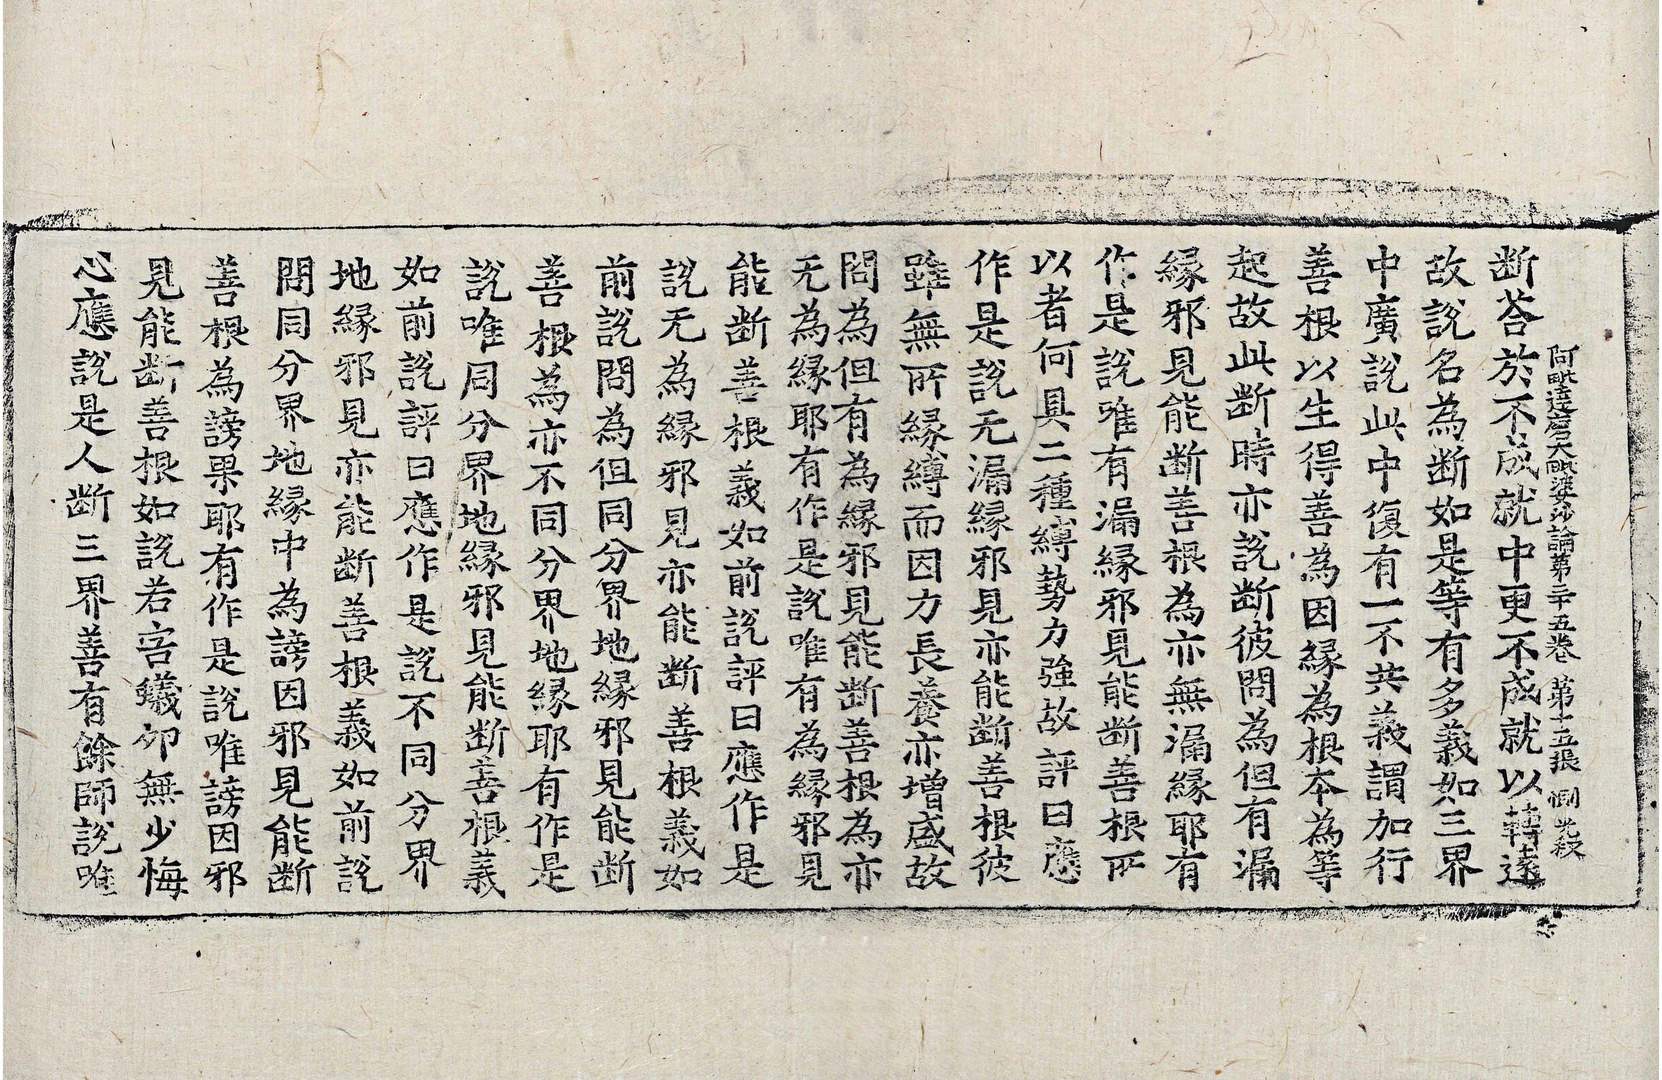 阿毗達磨大毗婆沙論第三十五卷 第十五張 惻
断荅於不成就中更不成就以轉遠
故說名為断如是等有多義如三界
中廣說此中復有一不共義謂加行
善根以生得善為因緣為根本為等
起故此断時亦說断彼問為但有漏
緣邪見能断善根為亦無漏緣耶有
作是說唯有漏緣邪見能断善根所
以者何具二種縛勢力強故評曰應
作是說无漏緣邪見亦能断善根彼
雖無所緣縛而因力長養亦增盛故
問為但有為緣邪見能断善根為亦
无為緣耶有作是說唯有為緣邪見
能断善根義如前說評曰應作是
說无為緣邪見亦能断善根義如
前說問為但同分界地緣邪見能断
善根為亦不同分界地緣耶有作是
說唯同分界地緣邪見能断善根義
如前說評曰應作是說不同分界
地緣邪見亦能断善根義如前說
問同分界地緣中為謗因邪見能断
善根為謗果耶有作是說唯謗因邪
見能断善根如說若害蟻卵無少悔
心應說是人断三界善有餘師說唯